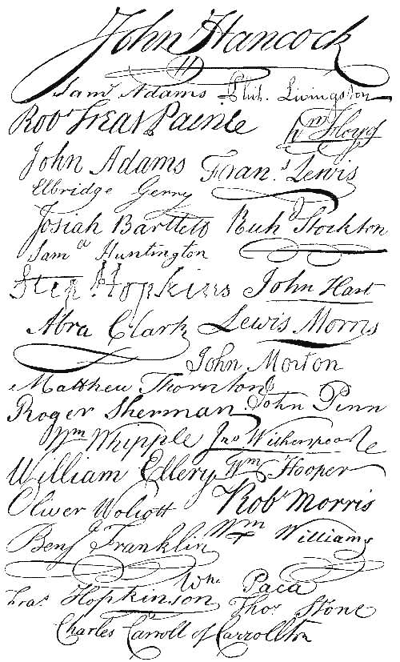 John Hancock
Saml Adams Phil. Livingston
Robt Treat Paine Wm Floyd
John Adams Frans Lewis
Elbridge Gerry
Josiah Bartlett Richd Stockton
Saml Huntington
Step Hopkins John Hart
Abra Clark Lewis Morris
John Morton
Matthew Thornton
Roger Sherman John Penn
Wm Whipple Jno Witherspoon
William Ellery Wm Hooper
Oliver Wolcott Robt Morris
Benj Franklin Wm Williams
Wm Paca
Fras Hopkinson Thos Stone
Charles Carroll of Carrollton